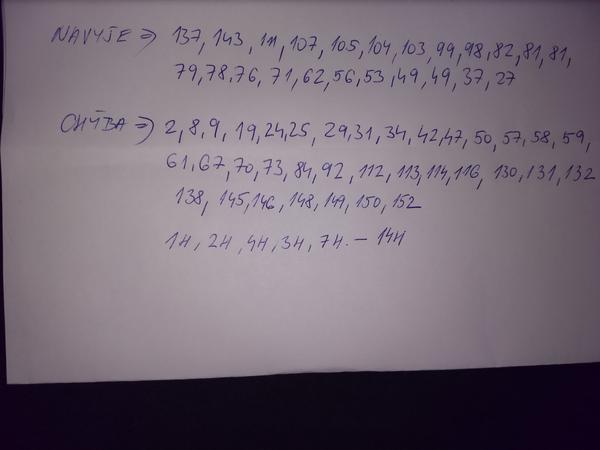 NAVYŠE => 137, 143, 111, 107, 105, 104, 103, 99, 98, 82, 81, 81,
79, 78, 76, 71, 62, 56, 53, 49, 49, 37, 27
CHÝBA => 2, 8, 9, 19, 24, 25, 29, 31, 34, 42, 47, 50, 57, 58, 59,
61, 67, 70, 73, 84, 92, 112, 113, 114, 116, 130, 131, 132
138, 145, 146, 148, 149, 150, 152
1H, 2H, 4H, 3H, 7H. - 14H